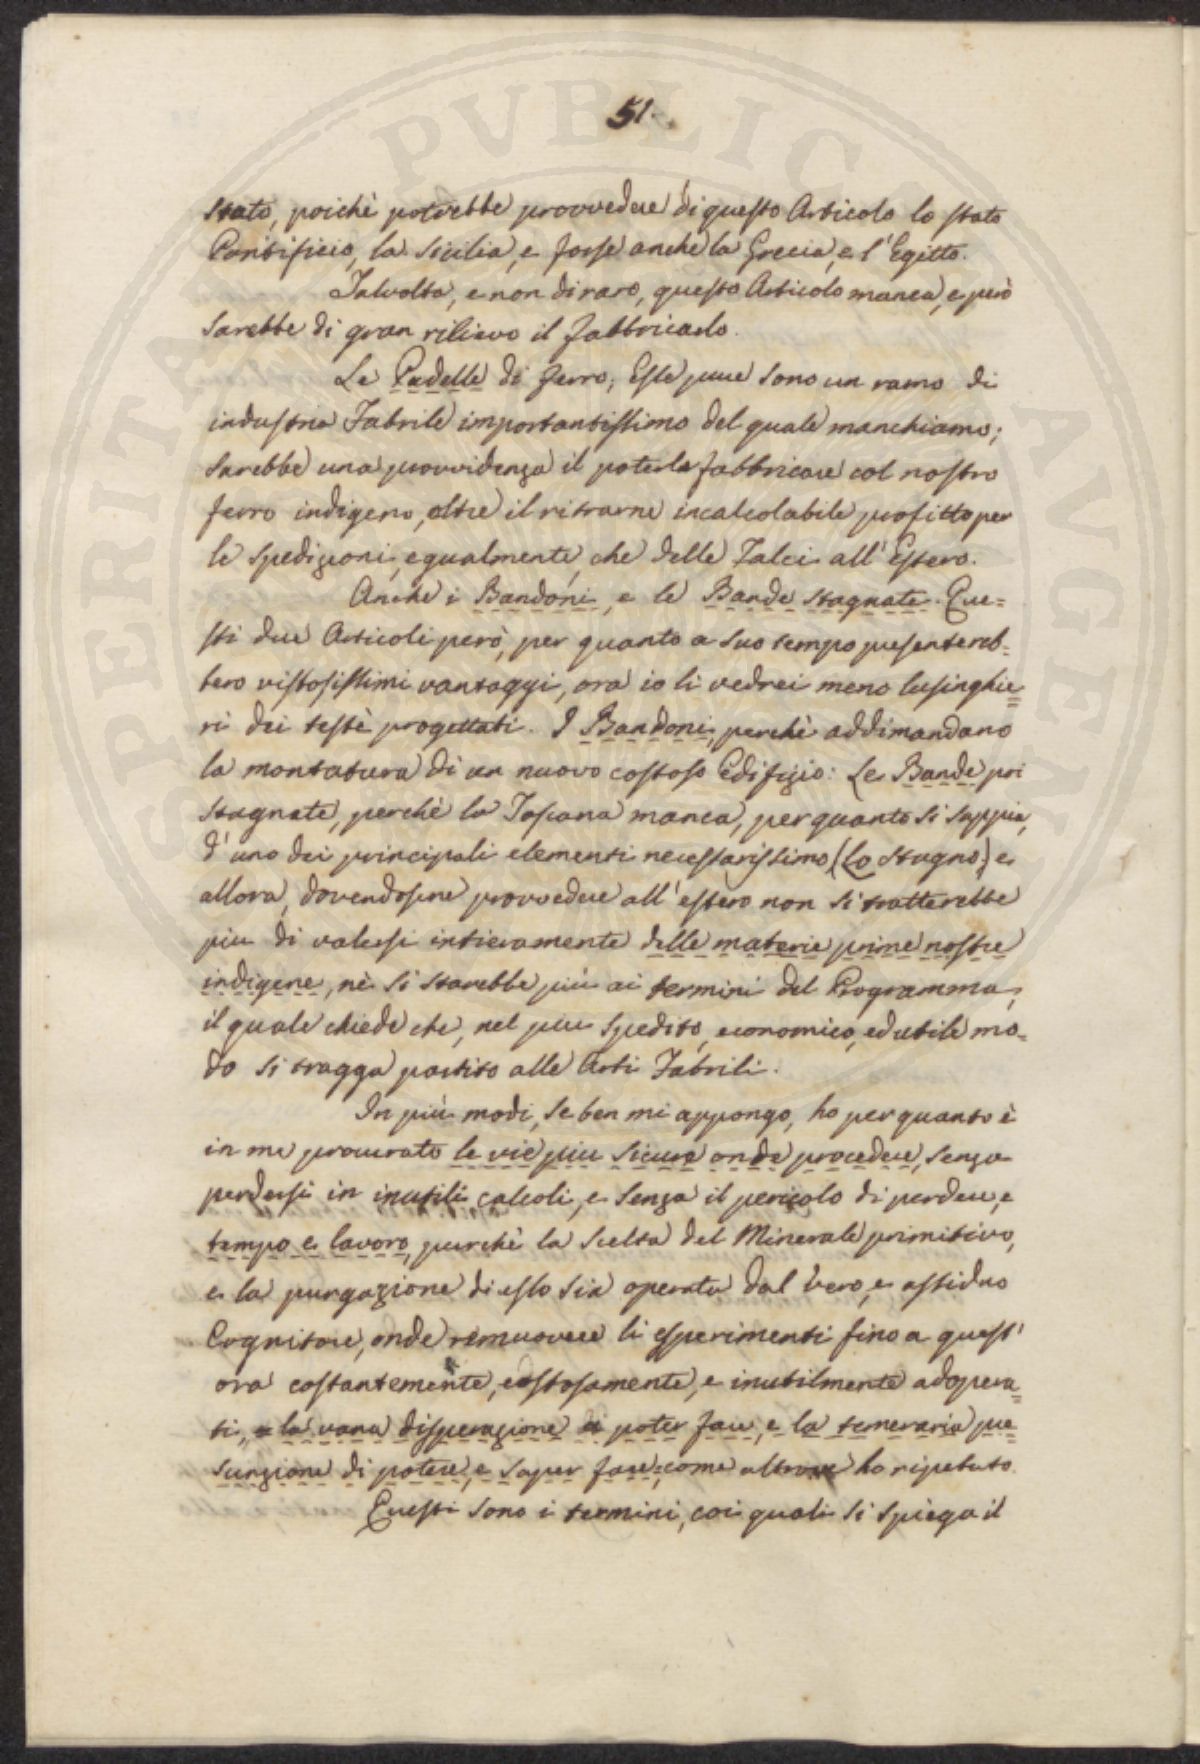 51.
Stato, poichè potrebbe provvedere di questo Articolo lo stato
Pontificio, la Sicilia, e forse anche la Grecia, e l'Egitto.
Talvolta, e non di raro, questo Articolo manca, e però
sarebbe di gran rilievo il fabbricarlo.
Le Padelle di ferro; Esse pure sono un ramo di
industria Fabrile importantissimo del quale manchiamo;
sarebbe una provvidenza il poterle fabbricare col nostro
ferro indigeno, oltre il ritrarne incalcolabile profitto per
le spedizioni, egualmente, che delle Falci all'Estero.
Anche i Bandoni, e le Bande stagnate. Que=
sti due Articoli però, per quanto a suo tempo presentereb=
bero vistosissimi vantaggi, ora io li vedrei meno lusinghie=
ri dei testè progettati. I Bandoni, perchè addimandano
la montatura di un nuovo costoso Edifizio: Le Bande poi
stagnate, perchè la Toscana manca, per quanto si sappia,
d'uno dei principali elementi necessarissimo (Lo Stagno,) e
allora, dovendosene provvedere all'estero non si tratterebbe
piu di valersi intieramente delle materie prime nostre
indigene, nè si starebbe più ai termini del Programma,
il quale chiede che, nel piu spedito, economico, ed utile mo=
do si tragga partito alle Arti Fabrili.
In più modi, se ben mi appongo, ho per quanto è
in me procurato le vie piu sicure onde procedere, senza
perdersi in inutili calcoli, e senza il pericolo di perdere, e
tempo e lavoro, purchè la scelta del Minerale primitivo,
e la purgazione di esso sia operata dal vero, e assiduo
Cognitore, onde remuovere li esperimenti fino a quest'
ora costantemente, costosamente, e inutilmente adopera=
ti, e la vana disperazione di poter fare, e la temeraria pre=
sunzione di potere, e saper fare, come altrove ho ripetuto.
Questi sono i termini, coi quali si spiega il
PERITAT PVBLIC AVGEN